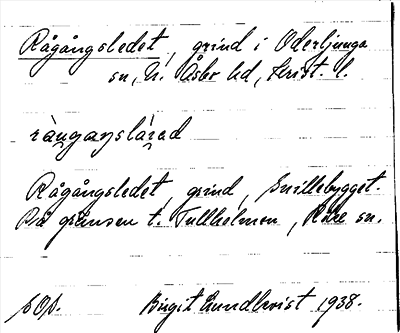 Rågångsledet, grind i Oderljunga
sn, N. Åsbo hd, Krist. l.
Rågångsledet, grind, Snillebygget.
På gränsen t. Tullholmen, Röke sn.
sOp. Birgit Lundkvist 1938.